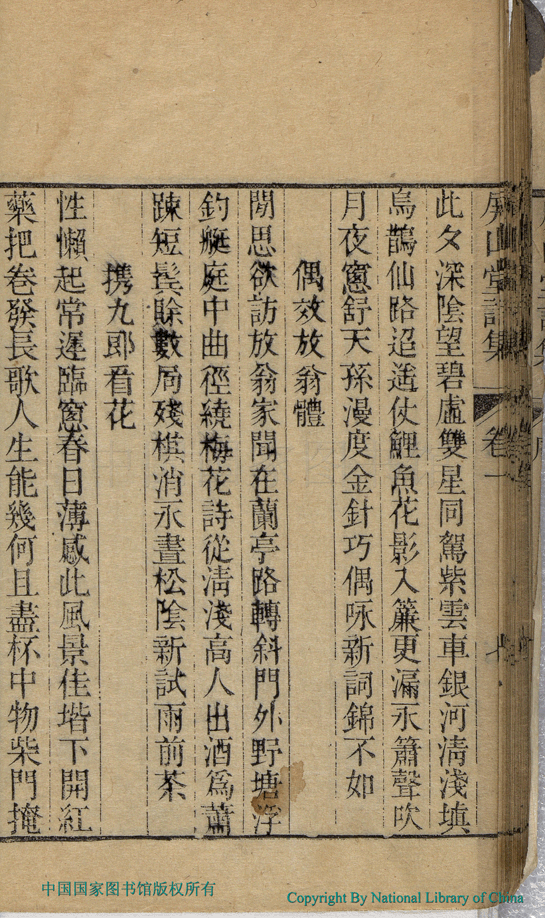 屏山堂詩集 卷一
此夕深陰望碧虛雙星同駕紫雲車銀河清淺填
烏鵲仙路迢遙仗鯉魚花影入簾更漏永簫聲吹
月夜窻舒天孫漫度金針巧偶咏新詞錦不如
偶效放翁體
閒思欲訪放翁家聞在蘭亭路轉斜門外野塘浮
釣艇庭中曲徑繞梅花詩從清淺高人出酒爲蕭
踈短鬂賖數局殘棋消永晝松陰新試雨前茶
携九郎看花
性懶起常遲臨窻春日薄感此風景佳堦下開紅
藥把卷發長歌人生能幾何且盡杯中物柴門掩
中国国家图书馆版权所有
Copyright By National Library of China